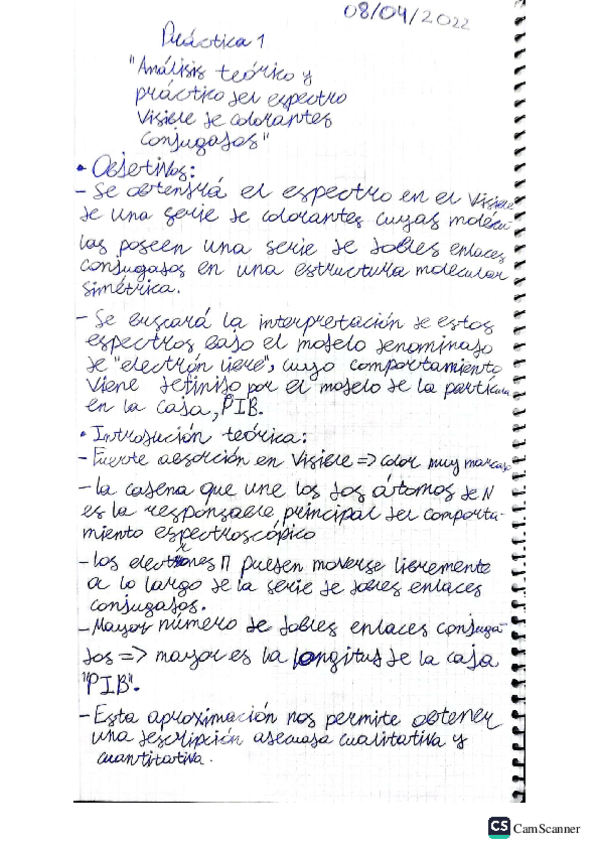 08/04/2022
Práctica 1
"Análisis teórico y
práctico del espectro
visible de colorantes
conjugados"
• Objetivos:
- Se obtendrá el espectro en el visible
de una serie de colorantes cuyas molécu-
las poseen una serie de dobles enlaces
conjugados en una estructura molecular
simétrica.
- Se buscará la interpretación de estos
espectros bajo el modelo denominado
de "electrón libre", cuyo comportamiento
viene definido por el modelo de la partícula
en la caja, PIB.
• Introdución teórica:
- Fuerte absorción en visible => color muy marcado
- La cadena que une los dos átomos de N
es la responsable principal del comporta-
miento espectroscópico
- Los electrones π pueden moverse libremente
a lo largo de la serie de dobles enlaces
conjugados.
- Mayor número de dobles enlaces conjuga-
dos => mayor es la longitud de la caja
"PIB".
- Esta aproximación nos permite obtener
una descripción adecuada cualitativa y
cuantitativa.
CS CamScanner